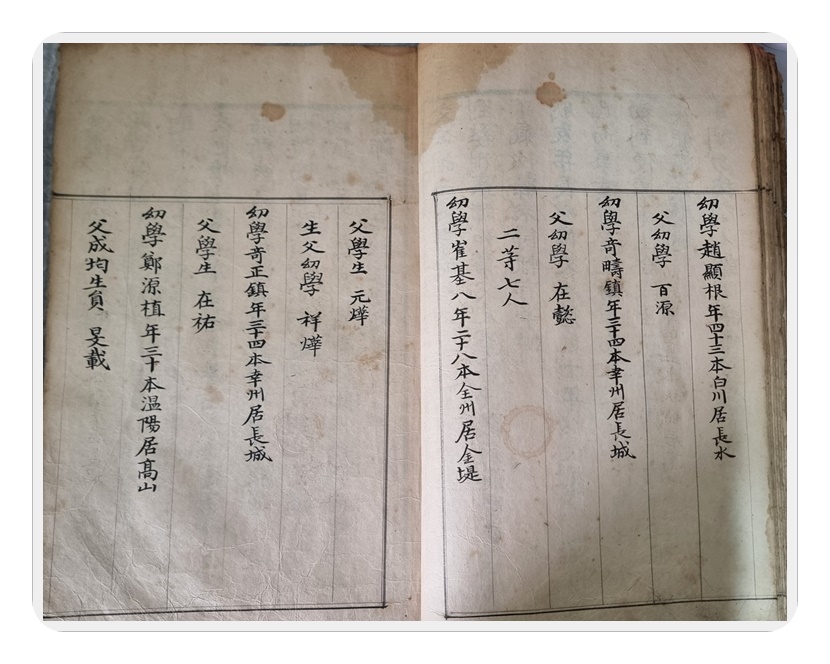 幼學趙顯根年四十三本白川居長水
父幼學 百源
幼學奇疇鎮年三十四本幸州居長城
父幼學 在懿
二等七人
幼學崔基八年二十八本全州居金堤
父學生 元燁
生父幼學 祥燁
幼學奇正鎮年三十四本幸州居長城
父學生 在祐
幼學鄭源植年三十本溫陽居高山
父成均生員 旻載